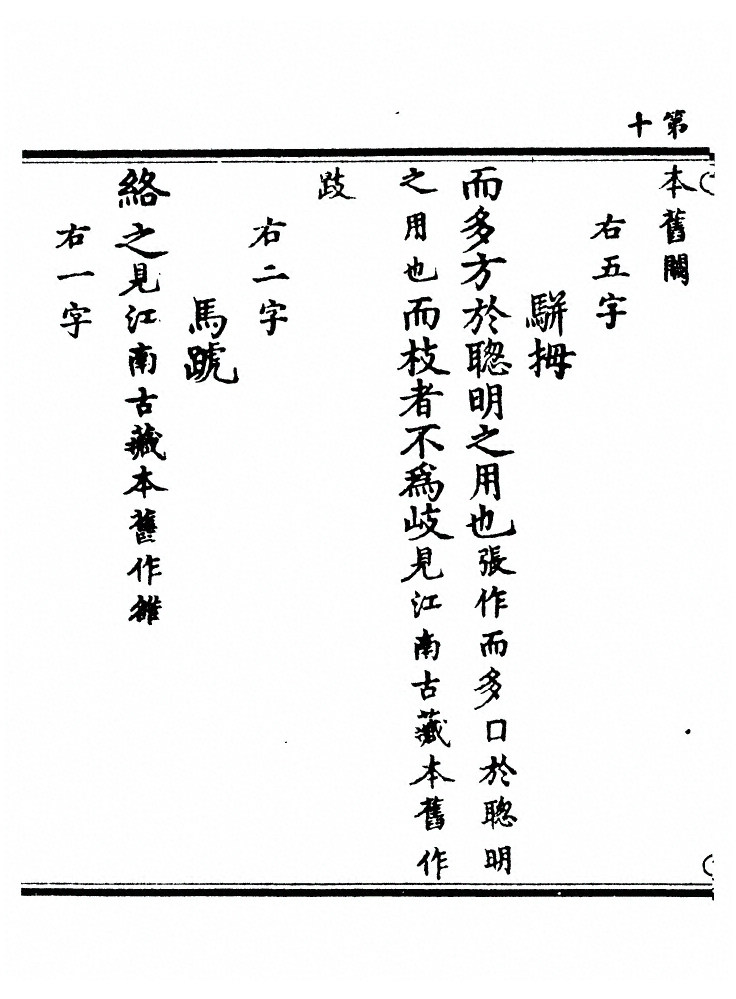 第十
本舊闕
右五字
駢拇
而多方於聰明之用也張作而多口於聰明
之用也而枝者不爲岐見江南古藏本舊作
跂
右二字
馬蹏
絡之見江南古藏本舊作雒
右一字